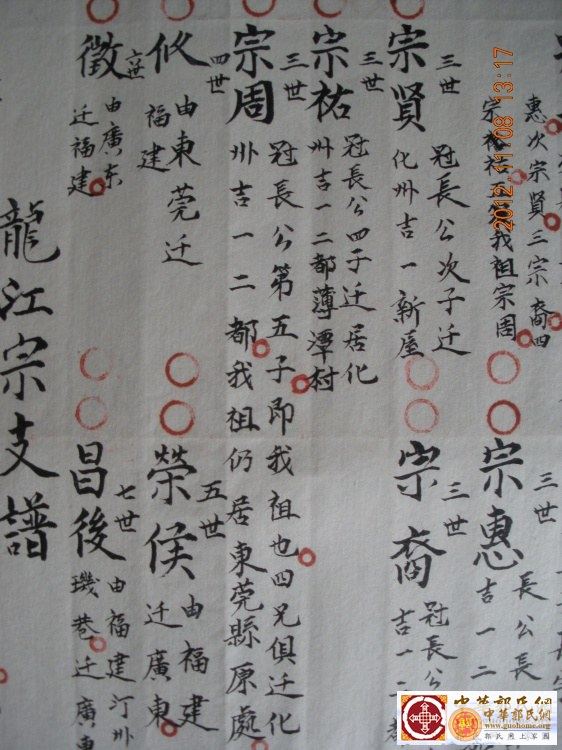 惠次宗賢三宗裔四
我祖宗周
三世
宗賢
冠長公次子迁
化州吉一新屋
三世
宗惠
長公長
吉一二
三世
宗裔
冠長公
吉一二
三世
宗祐
冠長公四子迁居化
州吉一二都薄潭村
三世
宗周
冠長公第五子即我祖也四兄俱迁化
州吉一二都我祖仍居東莞縣原處
四世
攸
由東莞迁
福建
五世
榮侯
由福建
迁廣東
六世
徵
由廣东
迁福建
七世
昌後
由福建汀州
璣巷迁廣東
龍江宗支譜
2012.11.08 13:17
中華郭氏網
中華郭氏網
www.guohome.org
郭氏網上家園